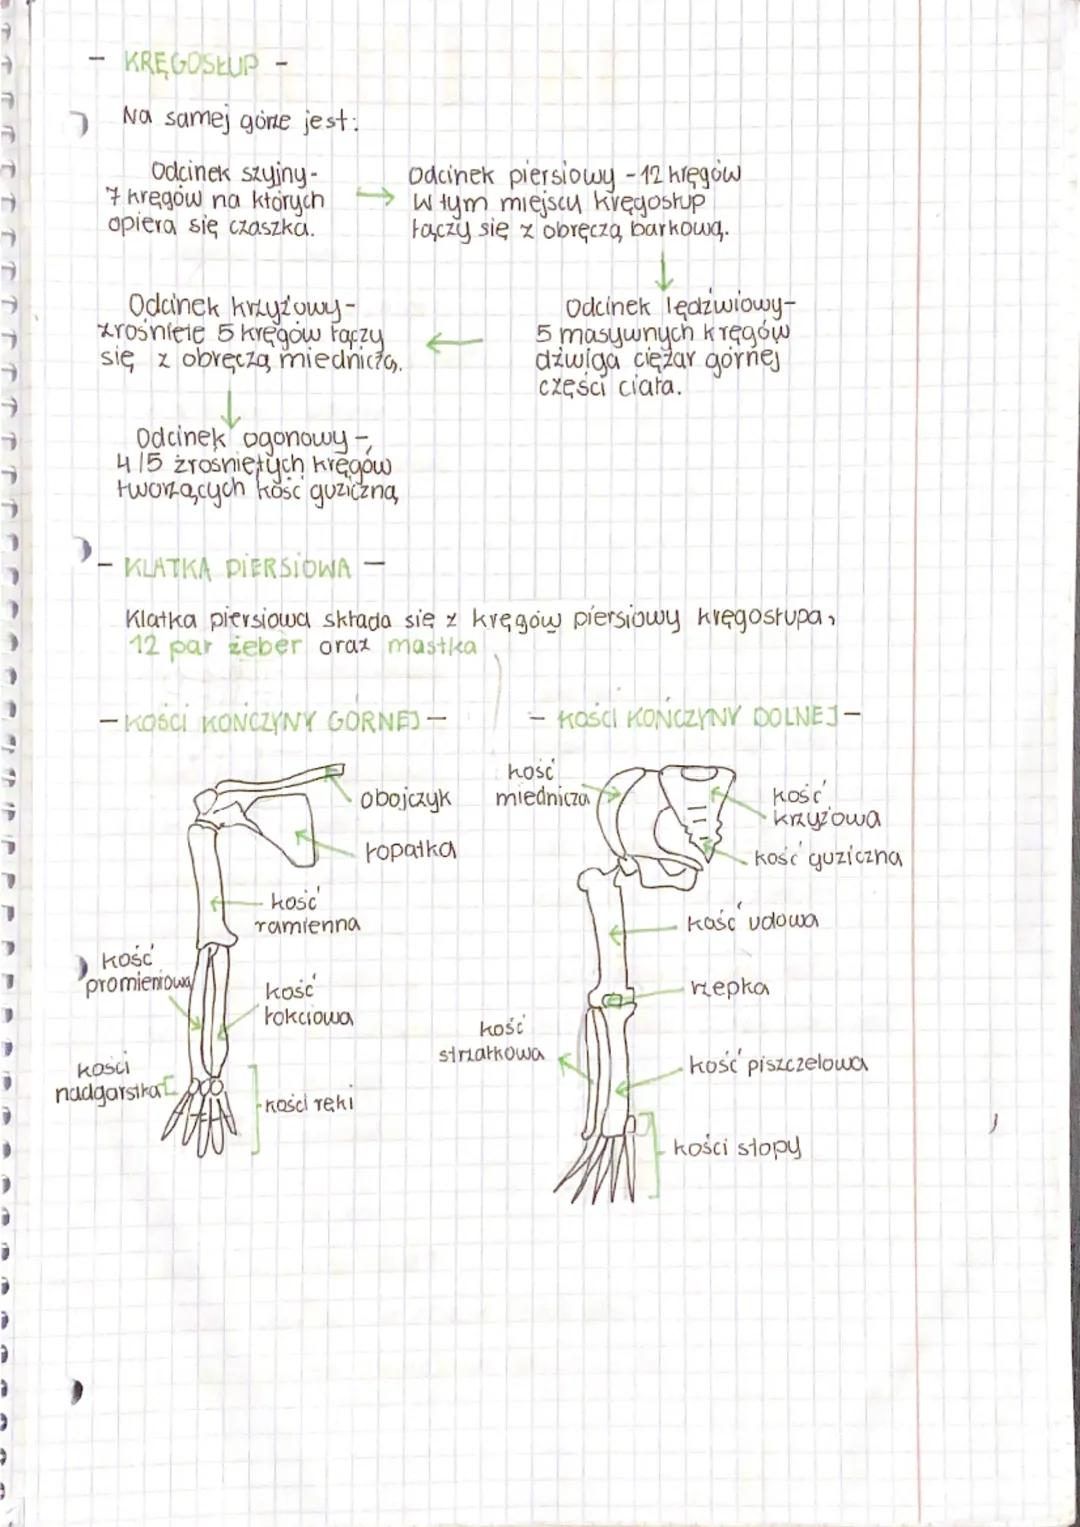 - KRĘGOSŁUP -
Na samej górze jest:
Odcinek szyjny-
7 kręgów na których
opiera się czaszka.
Odcinek piersiowy - 12 kręgów
W tym miejscu kręgosłup
łączy się z obręczą barkową.
Odcinek lędźwiowy-
5 masywnych kręgów
dźwiga ciężar górnej
części ciała.
Odcinek krzyżowy-
zrośnięte 5 kręgów łączy
się z obręczą miedniczą.
Odcinek ogonowy-
4/5 zrośniętych kręgów
tworzących kość guziczną
- KLATKA PIERSIOWA -
Klatka piersiowa składa się z kręgów piersiowy kręgosłupa,
12 par żeber oraz mostka
- KOŚCI KOŃCZYNY GÓRNEJ -
obojczyk
łopatka
kość
ramienna
kość
promieniowa
kość
łokciowa
kości
nadgarstka
kości ręki
- KOŚCI KOŃCZYNY DOLNEJ -
kość
miednicza
kość
krzyżowa
kość guziczna
kość udowa
rzepka
kość
strzałkowa
kość piszczelowa
kości stopy